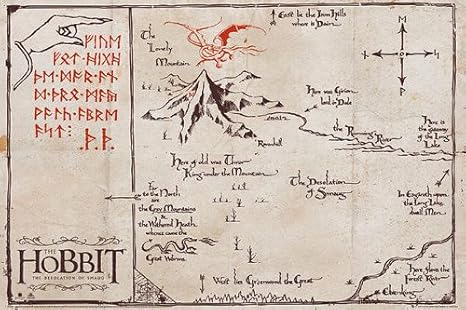 ᚠᛁᚢᛖ
.ᚦ.ᚦ.
The
Lonely
Mountain
East lie the Iron Hills
where is Dain.
Here was Girion
Lord in Dale
The Running River
Here is
the
of the Long
Lake
Ravenhill
Here of old was Thror
King under the Mountain
The Desolation
of Smaug
Far
to the North
are
the Grey Mountains
&
the Withered Heath
whence came the
Great Worms.
In Esgaroth upon
the Long Lake
dwell Men
THE
HOBBIT
THE DESOLATION OF SMAUG
West lies Mirkwood the Great
Here flows the
Forest River
Elvenking